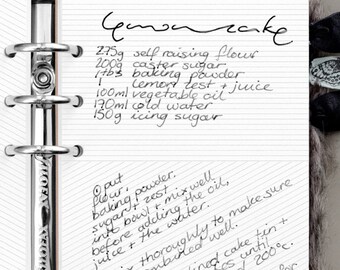 lemon cake
275g self raising flour
200g caster sugar
1tbs baking powder
lemon zest + juice
100ml vegetable oil
170ml cold water
150g icing sugar
① put
flour,
baking powder,
sugar + zest
into bowl + mix well
before adding the oil,
juice + the water.
thoroughly to make sure
well.
lined cake tin +
until
200°c.